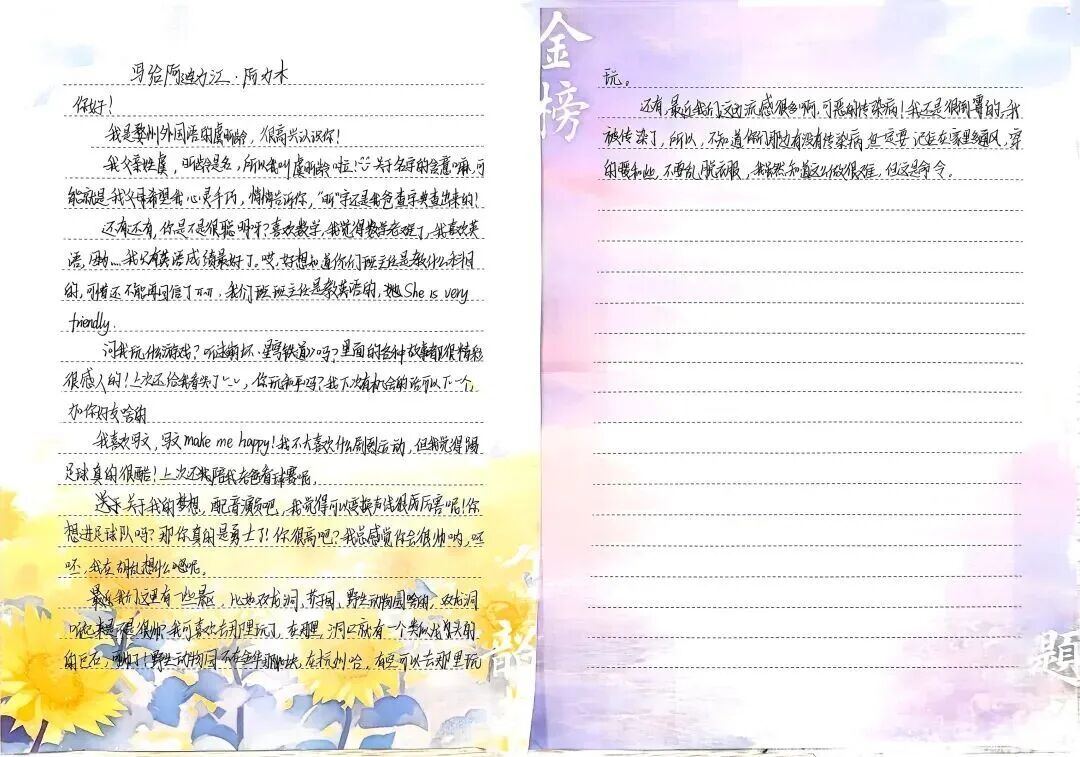 写给阿迪力江·阿力木
你好！
我是婺州外国语的虞昕龄，很高兴认识你！
我父亲姓虞，昕龄是名，所以我叫虞昕龄啦！关于名字的含意嘛，可
能就是我父母希望我心灵手巧，悄悄告诉你，“昕”字还是我爸查字典查出来的！
还有还有，你是不是很聪明呀？喜欢数学，我觉得数学老难了，我喜欢英
语，因为……我只有英语成绩最好了。哎，好想知道你们班主任是教什么科目
的，可惜还不能再回信了TT，我们班班主任是教英语的，她She is very
friendly.
问我玩什么游戏？听过《崩坏·星穹铁道》吗？里面的各种故事都很精彩
很感人的！上次还给我看哭了，你玩和平吗？我下次有机会的话可以下一个，
加你好友啥的
我喜欢写文，写文make me happy！我不大喜欢什么剧烈运动，但我觉得踢
足球真的很酷！上次还陪我爸爸看球赛呢。
关于我的梦想，配音演员吧，我觉得可以变换声线很厉害呢！你
想进足球队吗？那你真的是勇士了！你很高吧？我总感觉你会很帅呐，呸
呸，我在胡乱想什么呢。
最近我们这里有一些景区，比如双龙洞、野生动物园啥的，双龙洞
听起来是不是很帅？我可喜欢去那里玩了，在那里，洞口就有一个类似龙头的
的巨石，野生动物园不在金华那块，在杭州哈，有空可以去那里玩
玩。
还有，最近我们这边流感很多啊，可恶的传染病！我还是很倒霉的，我
被传染了，所以，不知道你们那边有没有传染病，但一定要记得在家里多通风，穿
的暖和些，不要乱脱衣服，我虽然知道这么做很难，但这是命令。
金榜
韶
题